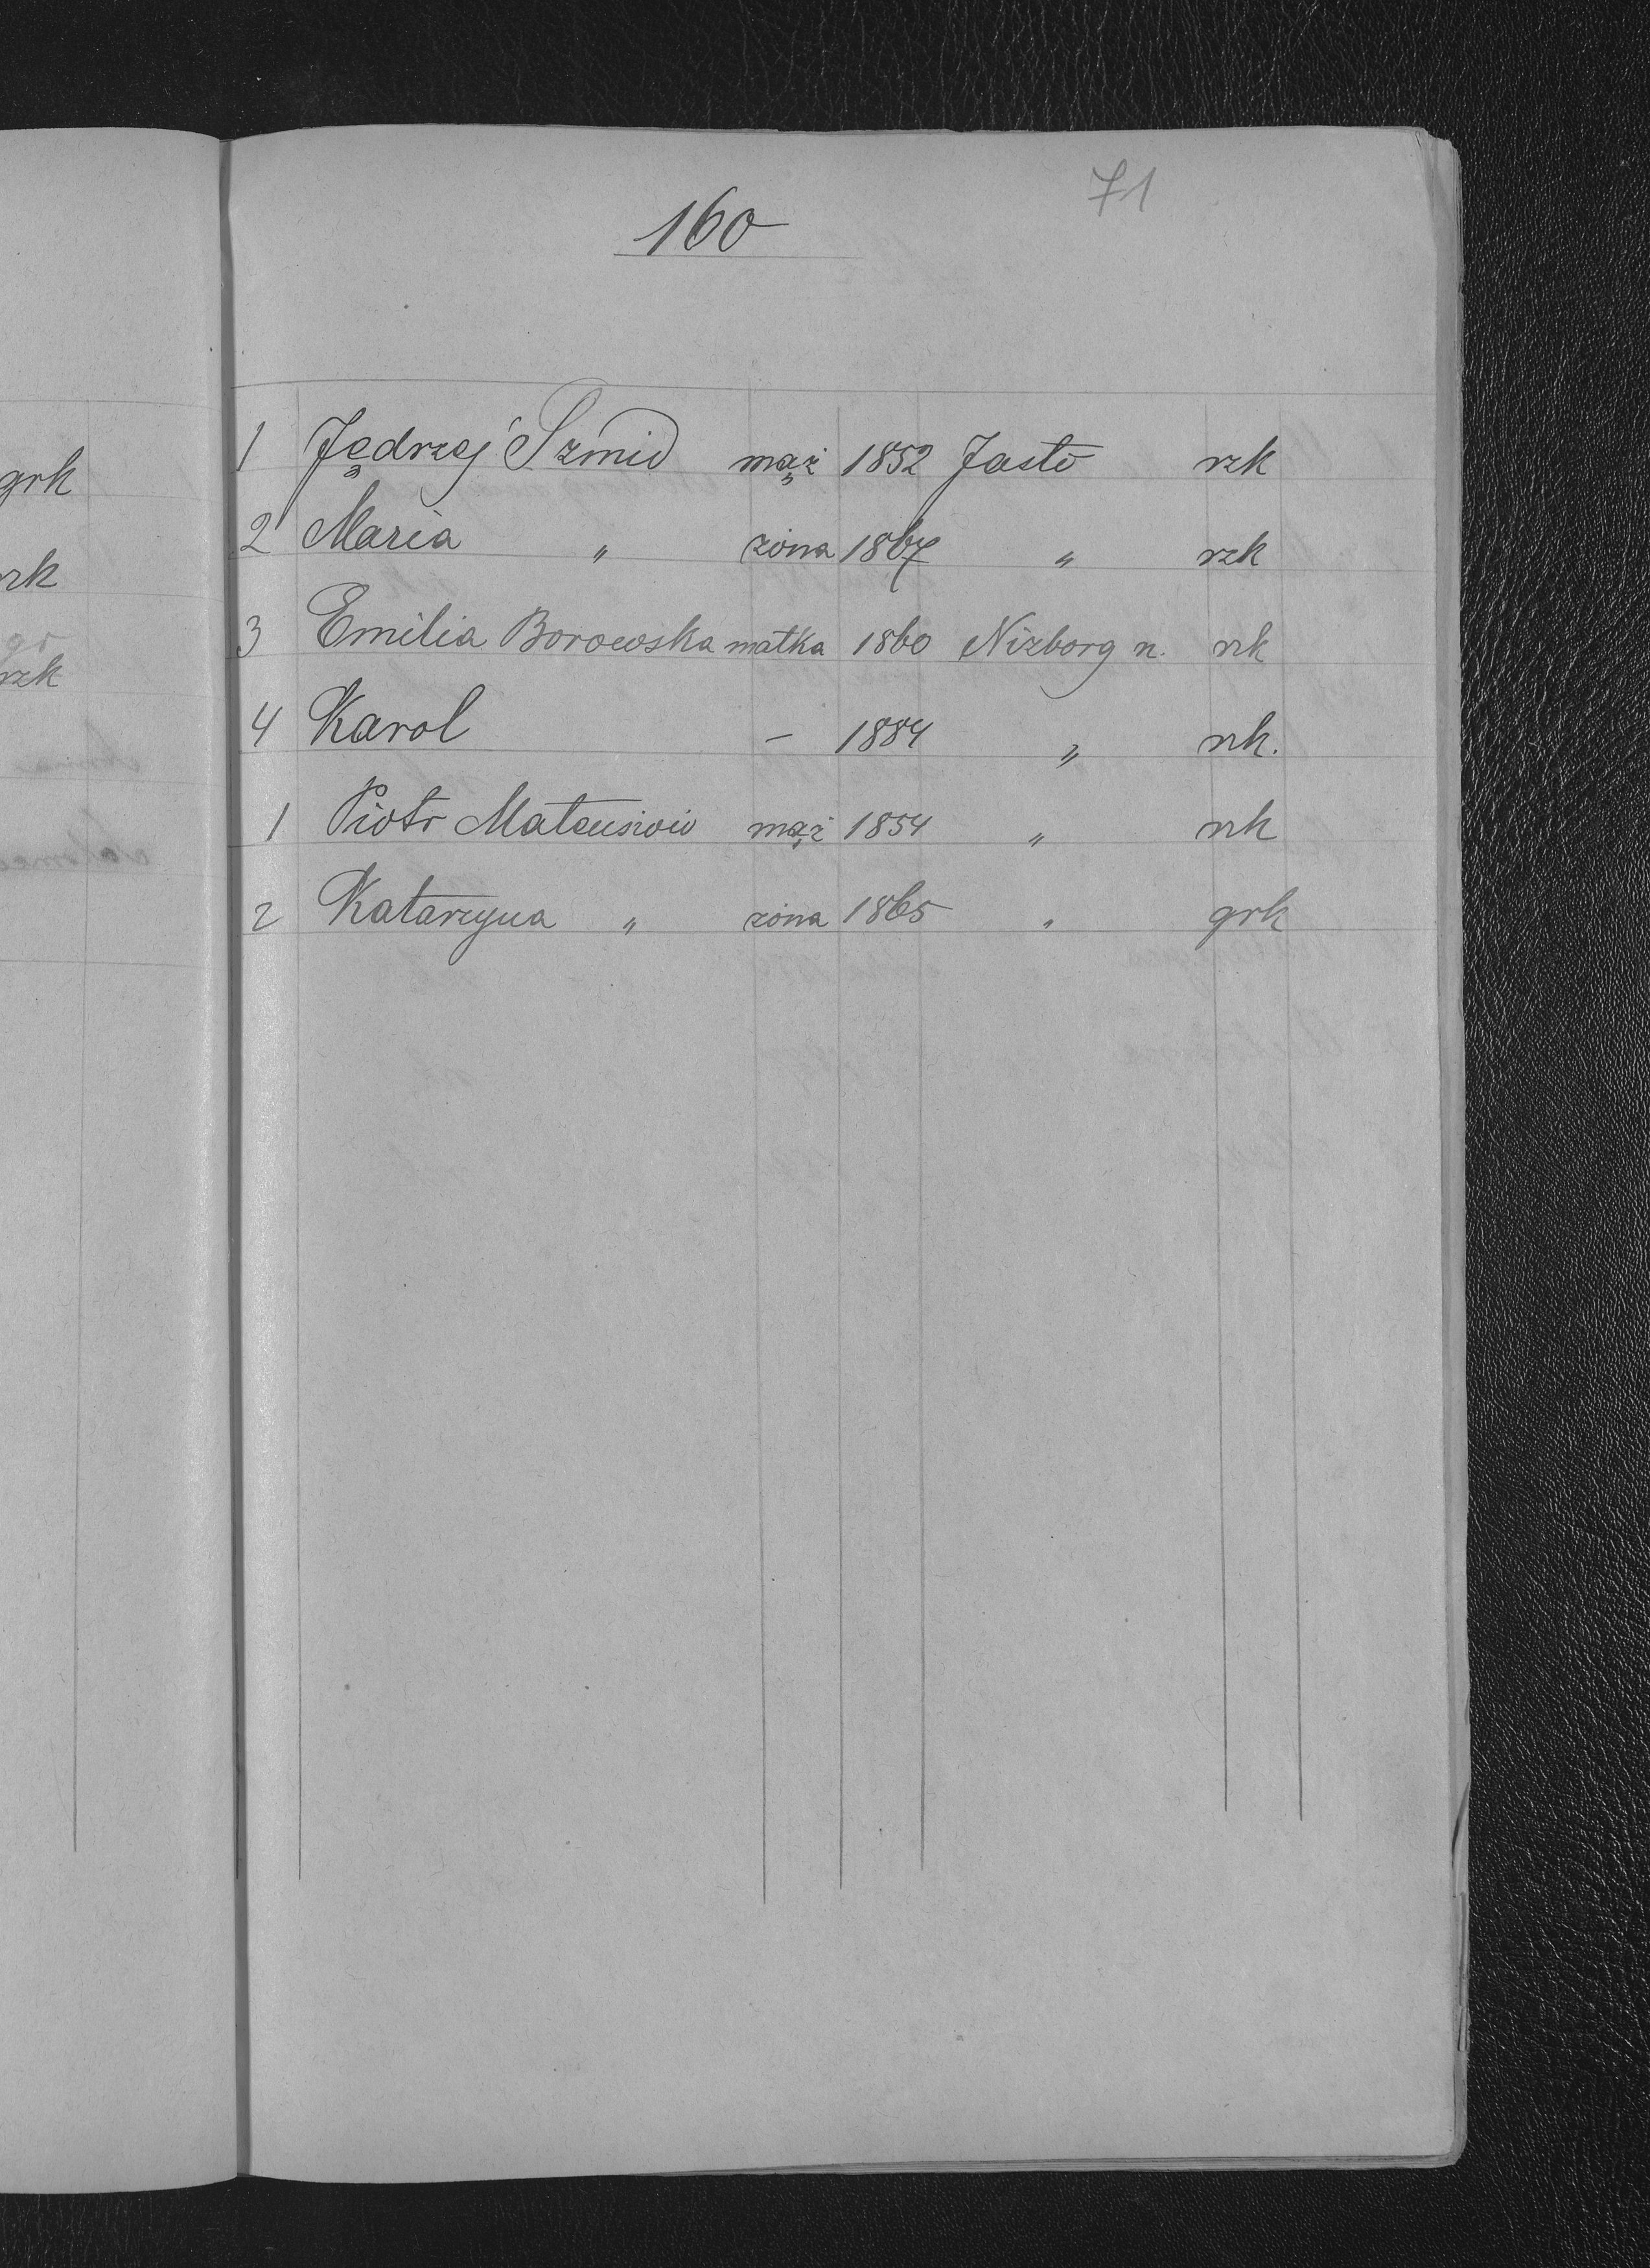 71
160
grk
rk
gr
rzk
1 Jędrzej Szmid mąż 1852 Jasło rzk
2 Maria " żona 1867 " rzk
3 Emilia Borowska matka 1860 Niżborg n. rzk
4 Karol — 1884 " rzk.
1 Piotr Mateusiwiw mąż 1854 " rzk
2 Katarzyna " żona 1865 " grk